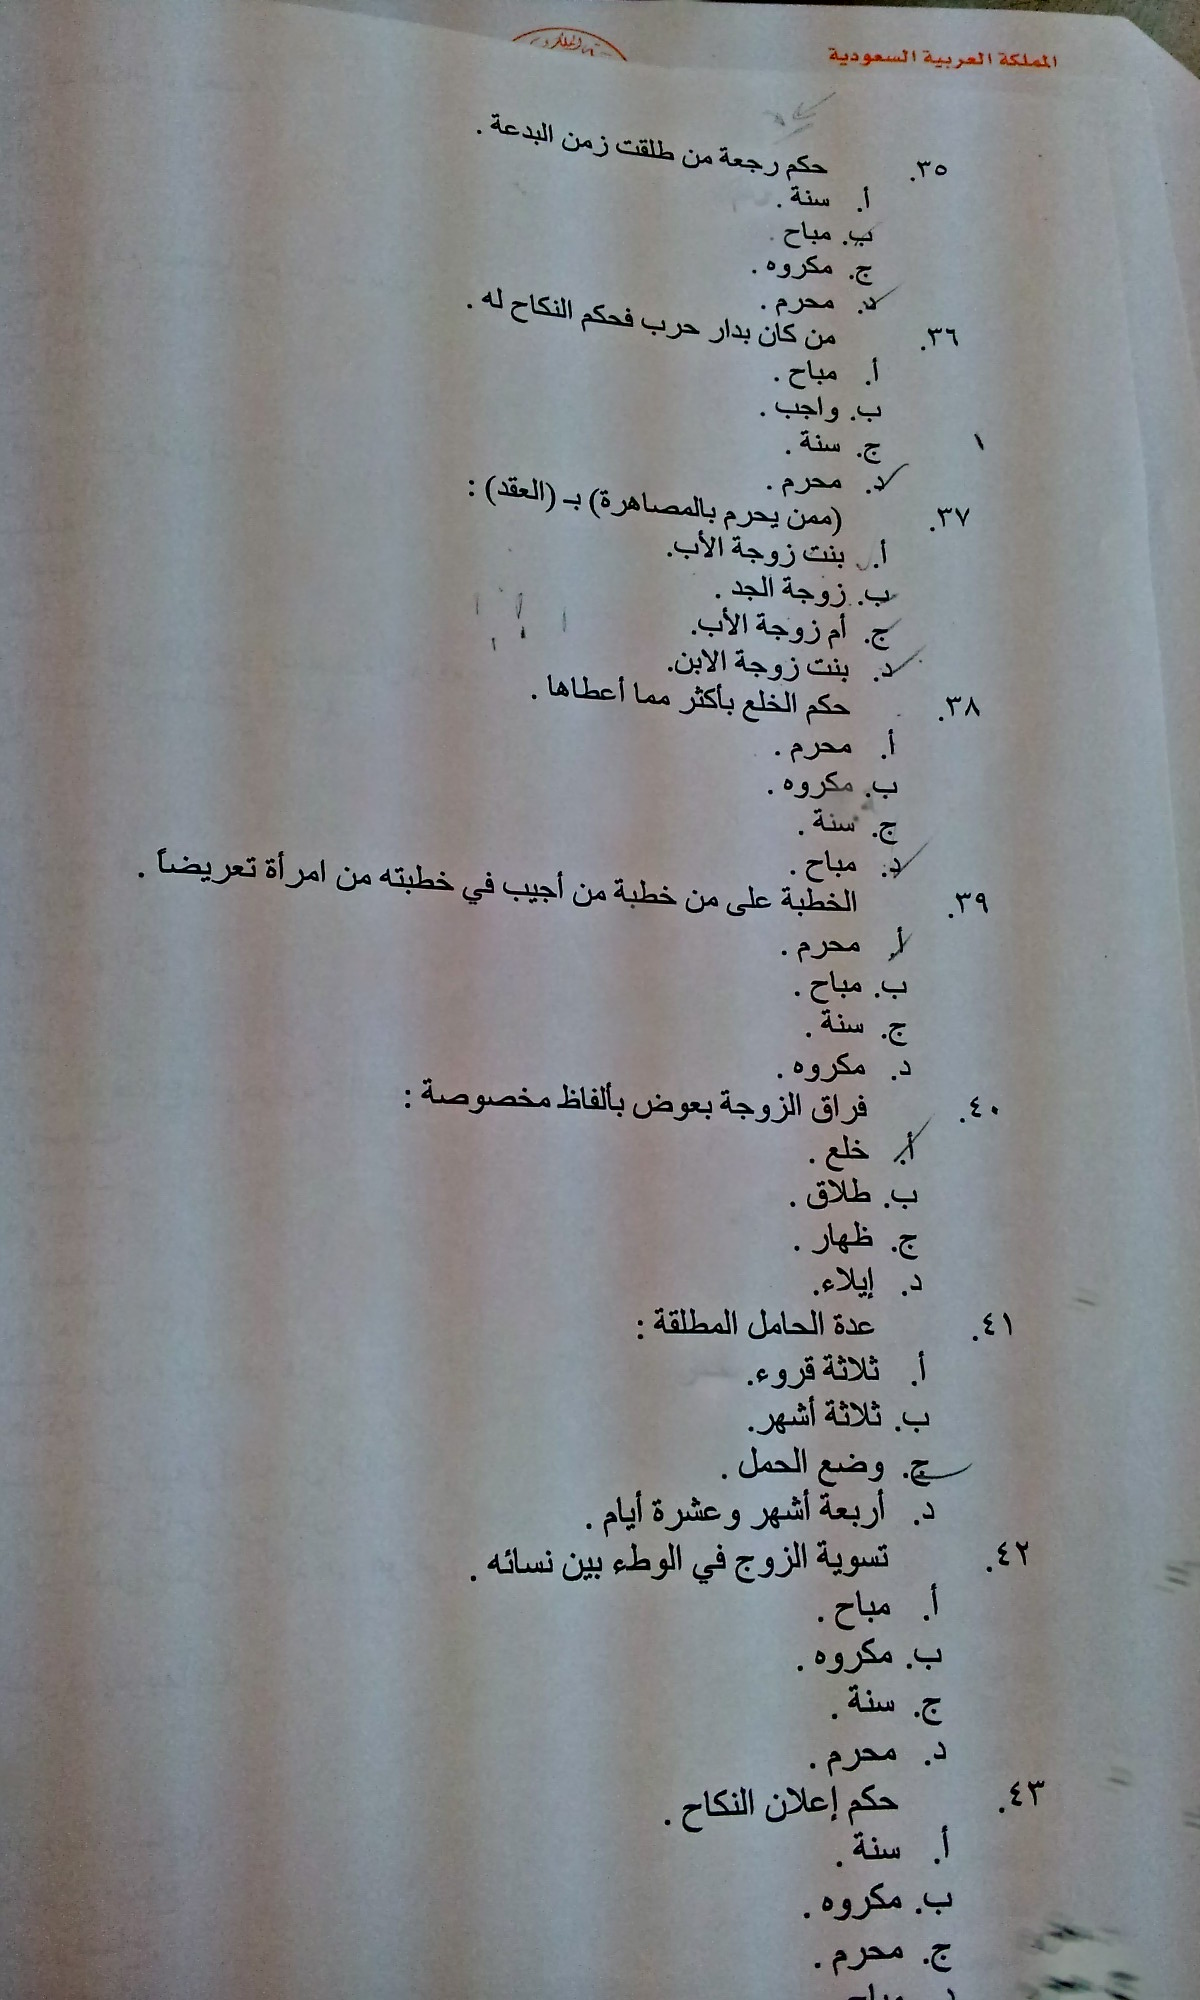 المملكة العربية السعودية
٣٥. حكم رجعة من طلقت زمن البدعة .
أ. سنة .
ب. مباح .
ج. مكروه .
د. محرم .
٣٦. من كان بدار حرب فحكم النكاح له .
أ. مباح .
ب. واجب .
ج. سنة .
د. محرم .
٣٧. (ممن يحرم بالمصاهرة) بـ (العقد) :
أ. بنت زوجة الأب.
ب. زوجة الجد .
ج. أم زوجة الأب.
د. بنت زوجة الابن.
٣٨. حكم الخلع بأكثر مما أعطاها .
أ. محرم .
ب. مكروه .
ج. سنة .
د. مباح .
٣٩. الخطبة على من خطبة من أجيب في خطبته من امرأة تعريضاً .
أ. محرم .
ب. مباح .
ج. سنة .
د. مكروه .
٤٠. فراق الزوجة بعوض بألفاظ مخصوصة :
أ. خلع .
ب. طلاق .
ج. ظهار .
د. إيلاء.
٤١. عدة الحامل المطلقة :
أ. ثلاثة قروء.
ب. ثلاثة أشهر.
ج. وضع الحمل .
د. أربعة أشهر وعشرة أيام .
٤٢. تسوية الزوج في الوطء بين نسائه .
أ. مباح .
ب. مكروه .
ج. سنة .
د. محرم .
٤٣. حكم إعلان النكاح .
أ. سنة .
ب. مكروه .
ج. محرم .